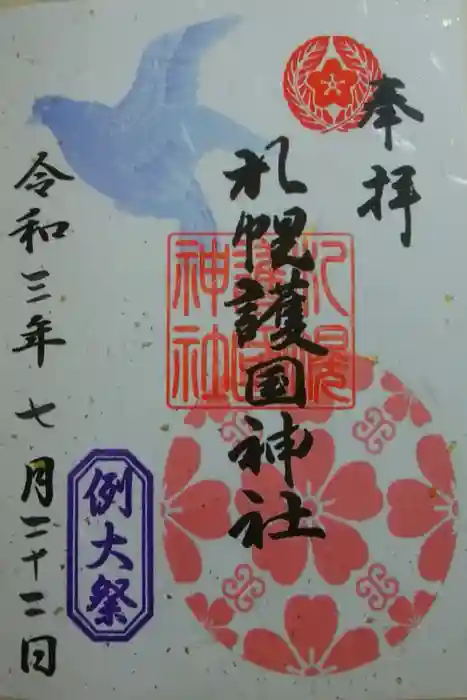 奉拝
札幌護国神社
札幌護国神社
令和三年七月二十二日
例大祭